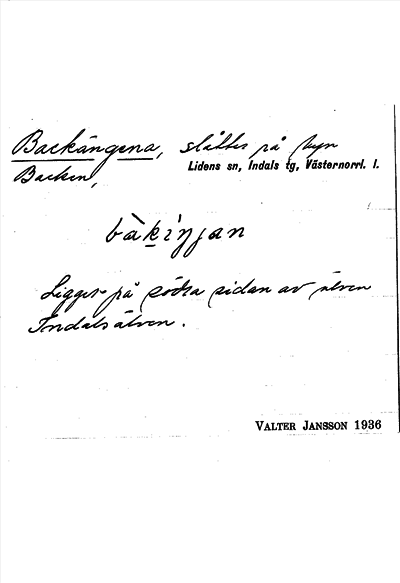 Backängena, slåtter på byn
Lidens sn, Indals tg, Västernorrl. l.
Backen,
bàki̇̀ŋjan
Ligger på södra sidan av älven
Indalsälven.
VALTER JANSSON 1936